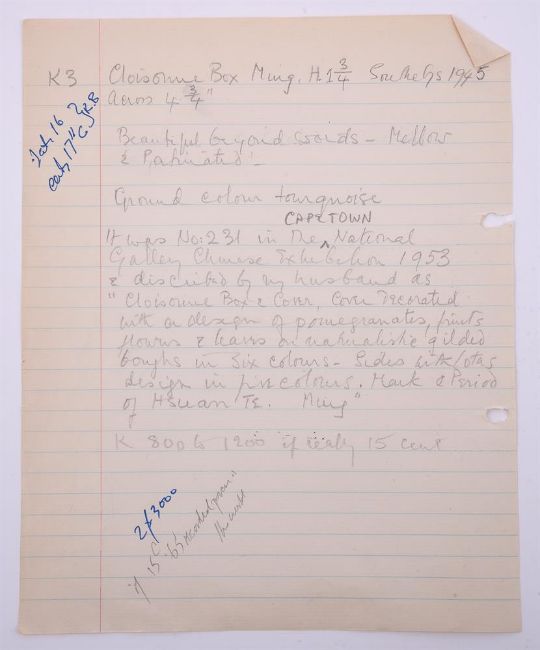 K3 Cloisonne Box Ming. H. 1 3/4 Sothebys 1945
Across 4 3/4"
Late 16
early 17th C J.R.B
Beautiful beyond words - Mellow
& Patinated! -
Ground colour tourquoise
CAPETOWN
It was No: 231 in The ^ National
Gallery Chinese Exhibition 1953
& discribed by my husband as
"Cloisonne Box & Cover, Cover Decorated
with a design of pomegranates, fruits
flowers & leaves on naturalistic gilded
boughs in six colours - Sides with lotus
design in five colours. Mark & Period
of HSuan TE. Ming"
K 800 to 1200 if really 15 cent
2/3000
if 15 C